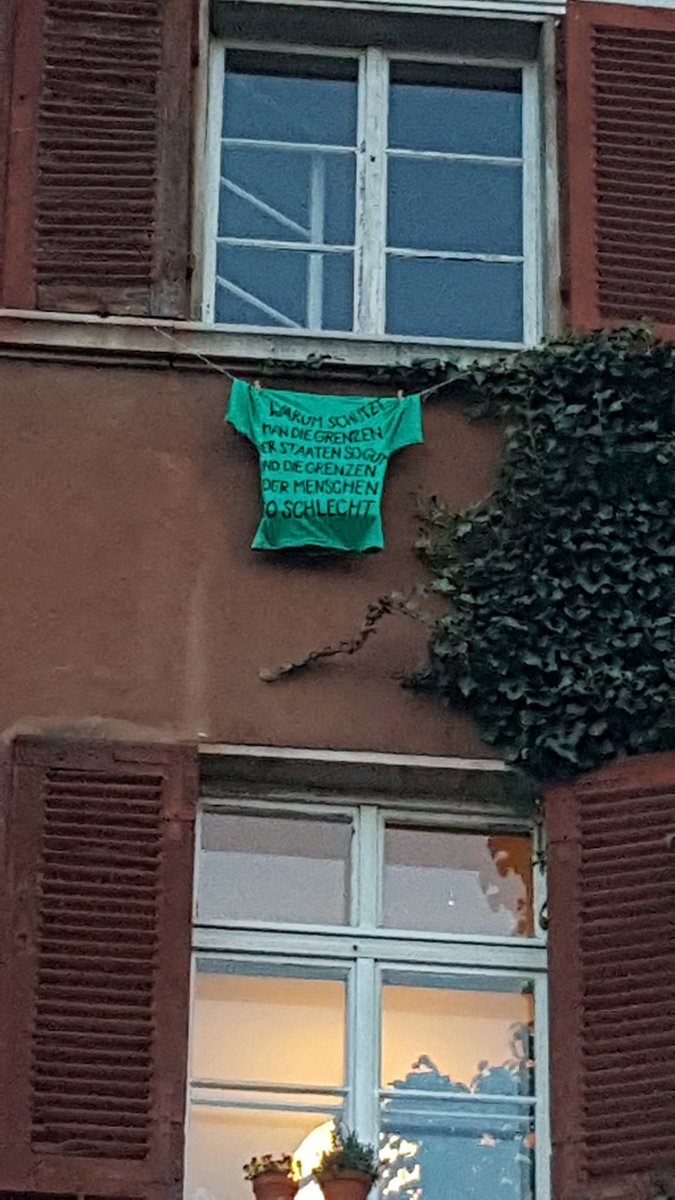 WARUM SCHÜTZT
MAN DIE GRENZEN
ER STAATEN SO GUT
ND DIE GRENZEN
DER MENSCHEN
O SCHLECHT